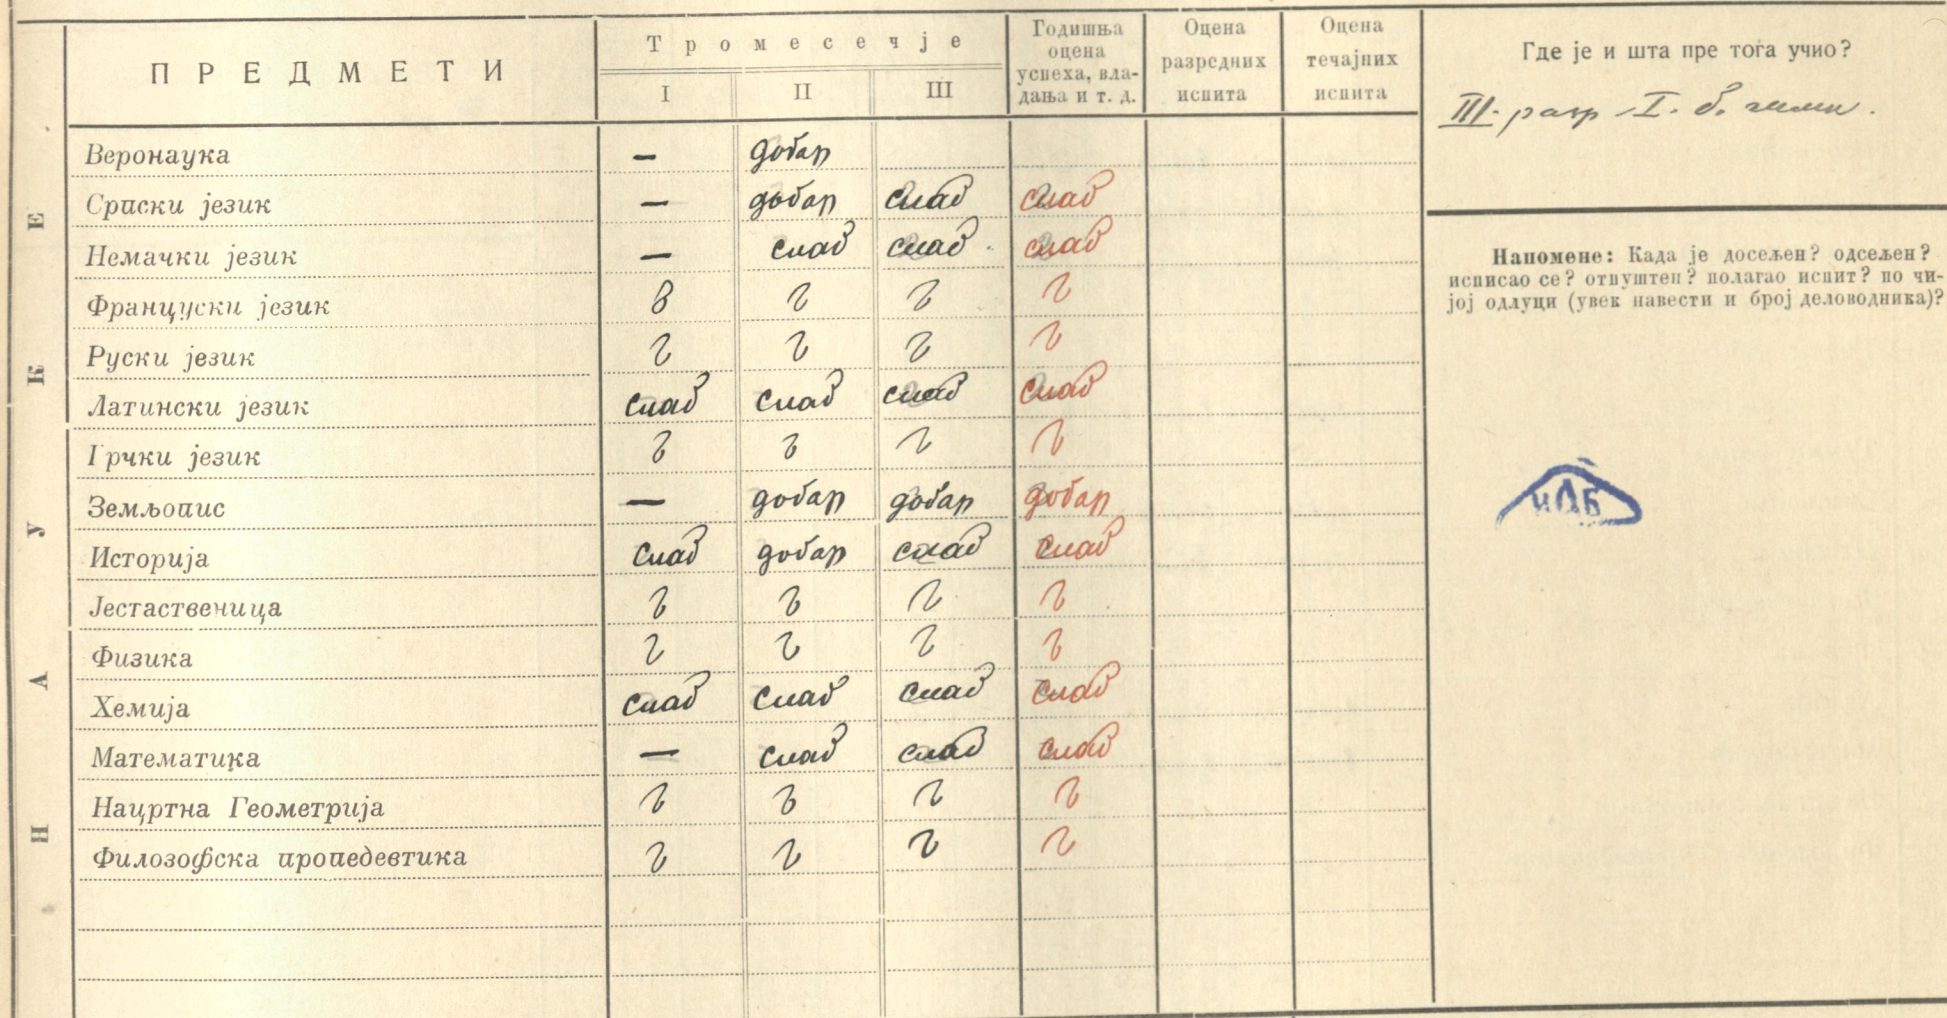 ПРЕДМЕТИ
Тромесечје
I II III
Годишња оцена успеха, владања и т. д.
Оцена разредних испита
Оцена течајних испита
НАУКЕ
Веронаука — добар
Српски језик — добар слаб слаб
Немачки језик — слаб слаб слаб
Француски језик
Руски језик
Латински језик слаб слаб слаб слаб
Грчки језик
Земљопис — добар добар добар
Историја слаб добар слаб слаб
Јестаственица
Физика
Хемија слаб слаб слаб слаб
Математика — слаб слаб слаб
Нацртна Геометрија
Филозофска пропедевтика
Где је и шта пре тога учио?
III. разр I. б. гимн.
Напомене: Када је досељен? одсељен?
исписао се? отпуштен? полагао испит? по чи-
јој одлуци (увек навести и број деловодника)?